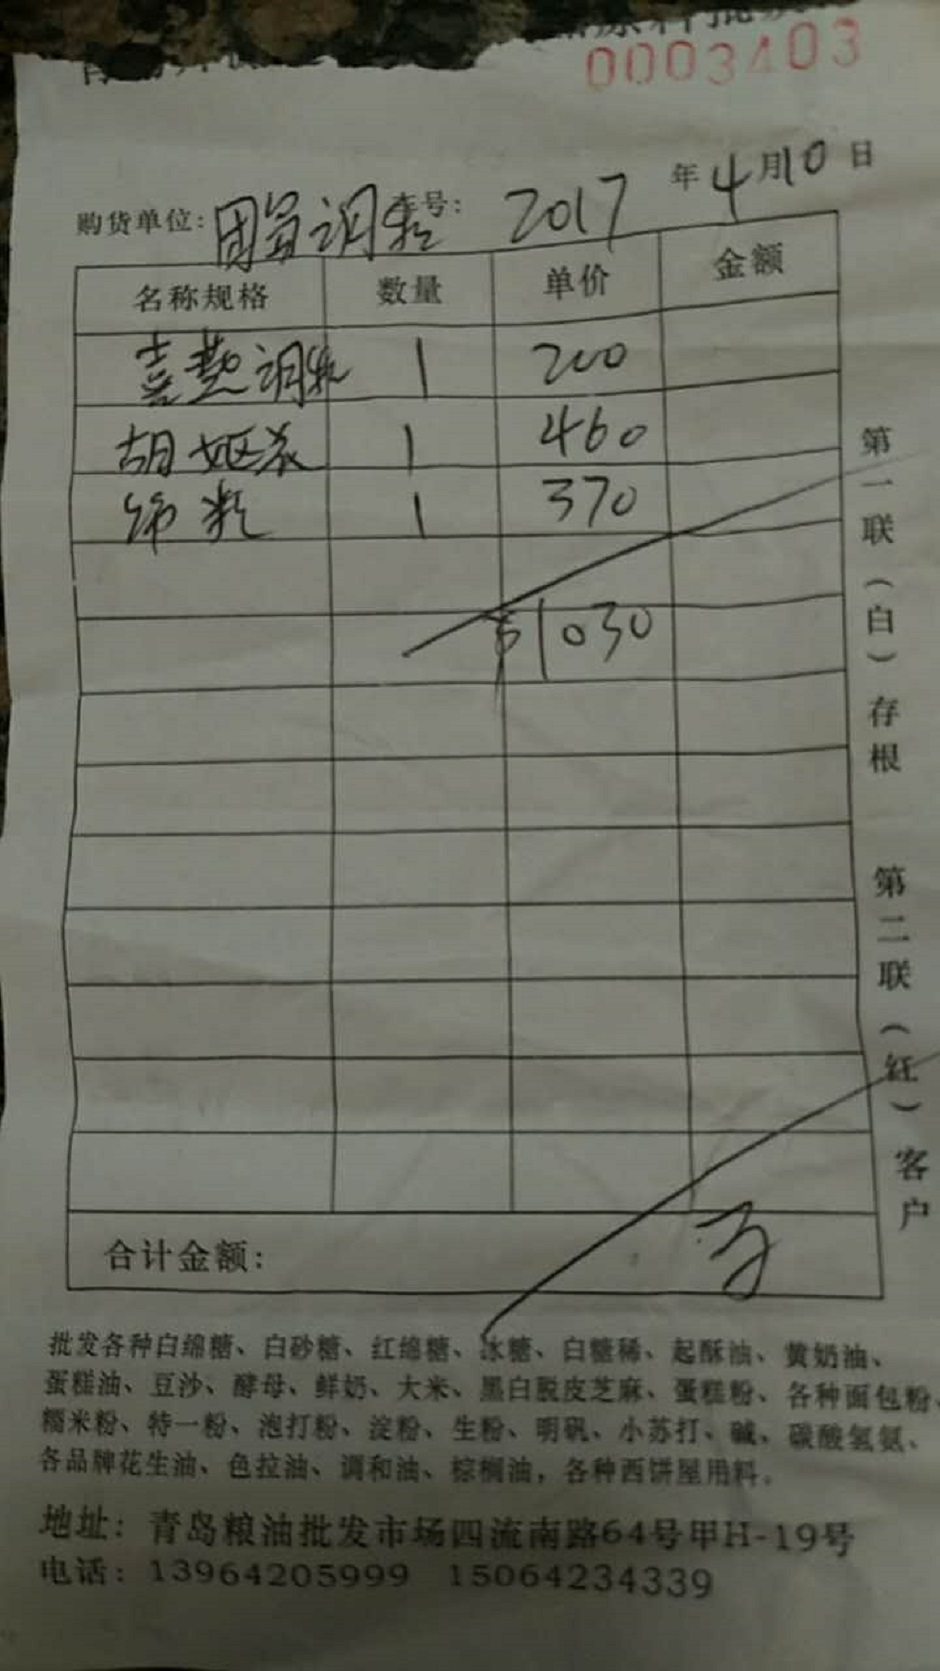 0003403
2017 年 4 月 10 日
购货单位: 号:
名称规格 数量 单价 金额
1 200
胡 1 460
1 370
1030
合计金额:
第一联(白)存根 第二联(红)客户
批发各种白绵糖、白砂糖、红绵糖、冰糖、白糖稀、起酥油、黄奶油、
蛋糕油、豆沙、酵母、鲜奶、大米、黑白脱皮芝麻、蛋糕粉、各种面包粉、
糯米粉、特一粉、泡打粉、淀粉、生粉、明矾、小苏打、碱、碳酸氢氨、
各品牌花生油、色拉油、调和油、棕榈油，各种西饼屋用料。
地址: 青岛粮油批发市场四流南路64号甲H-19号
电话: 13964205999 15064234339